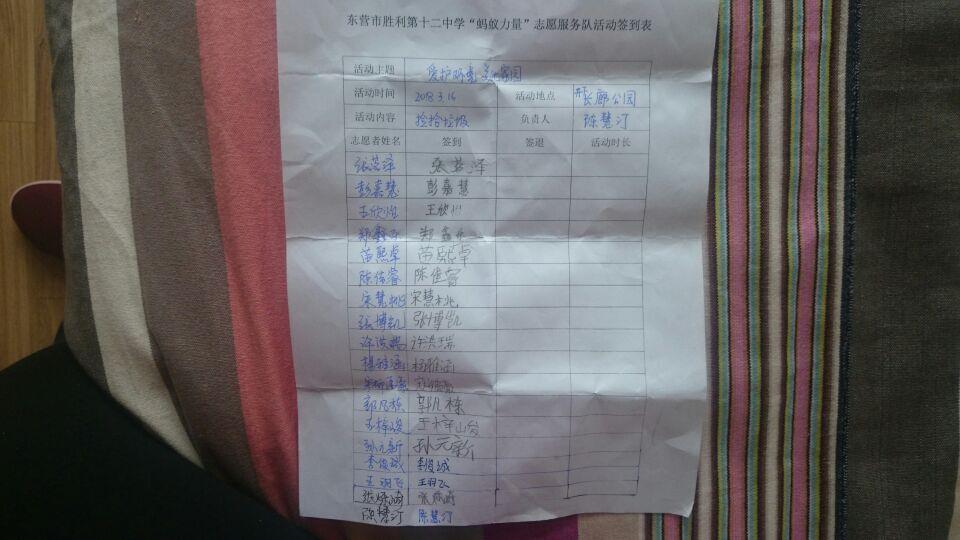 东营市胜利第十二中学“蚂蚁力量”志愿服务队活动签到表
活动主题 爱护环境 美化家园
活动时间 2018.3.16 活动地点 长廊公园
活动内容 捡拾垃圾 负责人 陈慧汀
志愿者姓名 签到 签退 活动时长
张芸泽 张芸泽
彭嘉慧 彭嘉慧
王欣 王欣
郑鑫 郑鑫
苗熙卓 苗熙卓
陈佳睿 陈佳睿
宋慧桃 宋慧桃
张博凯 张博凯
许洪瑞 许洪瑞
杨雅涵 杨雅涵
郭凡栋 郭凡栋
王梓 王梓
孙元新 孙元新
李俊斌 李俊斌
王羽飞 王羽飞
张 张
陈慧汀 陈慧汀